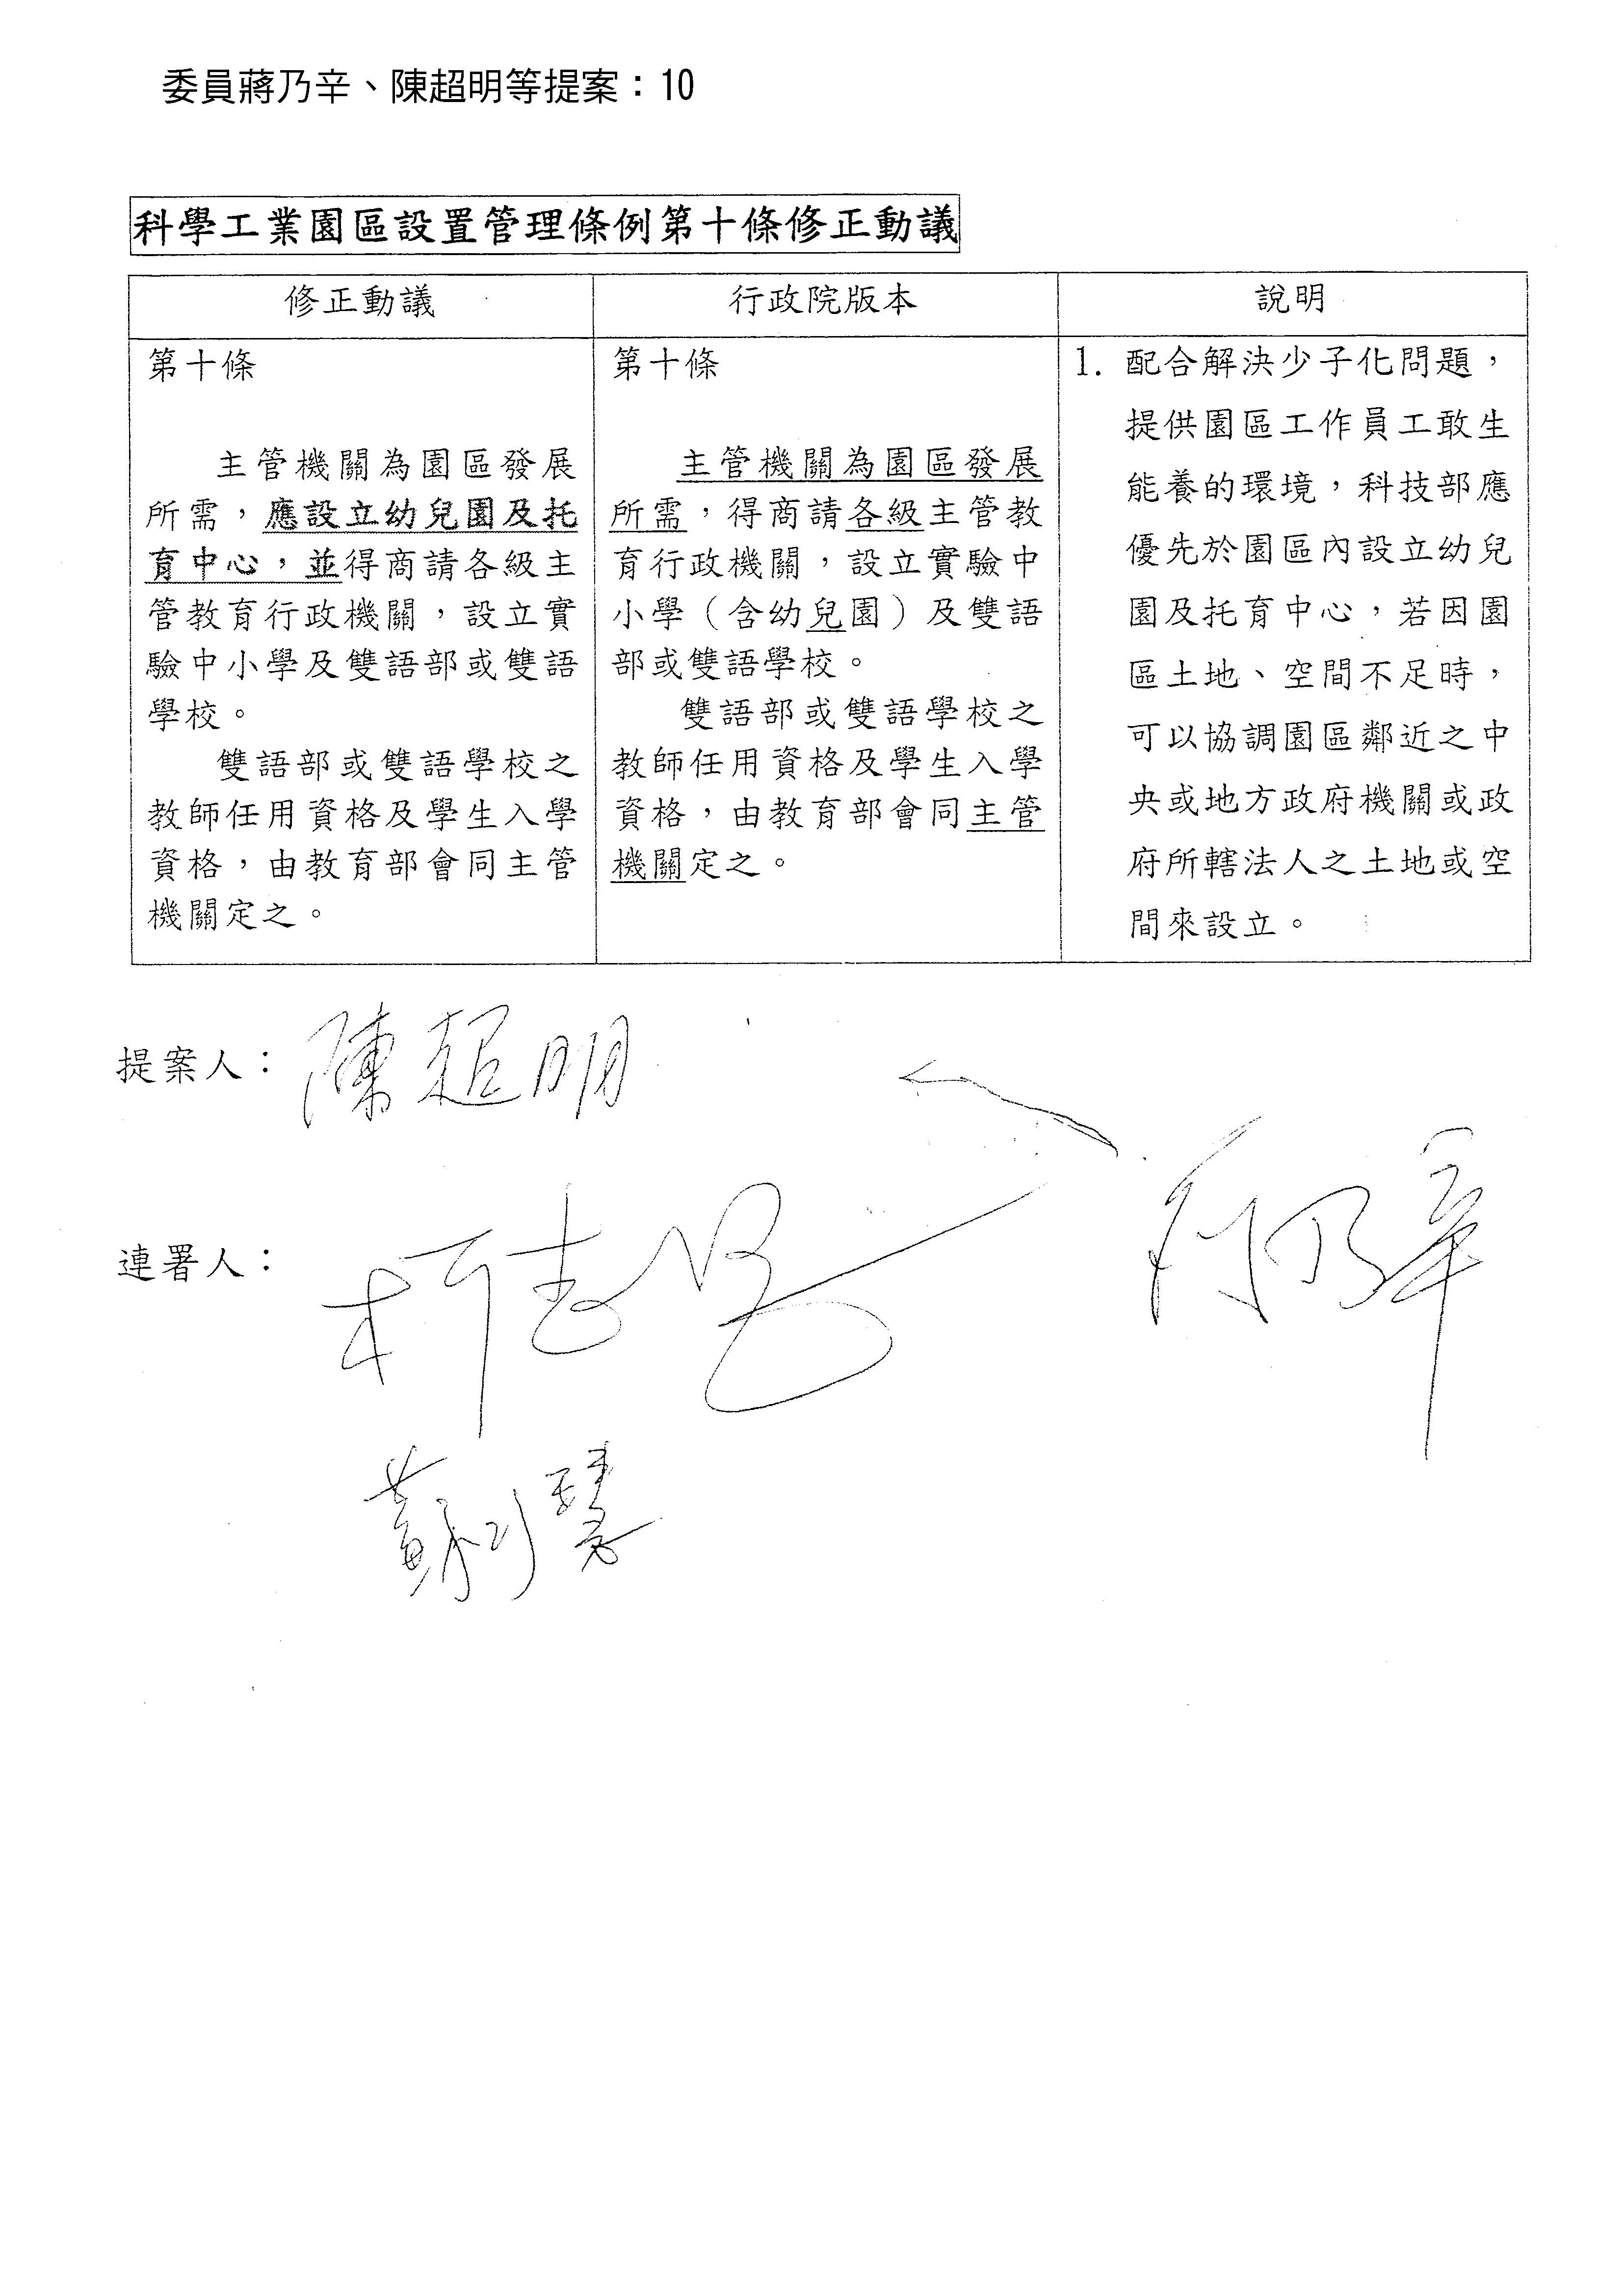 委員蔣乃辛、陳超明等提案：10
科學工業園區設置管理條例第十條修正動議
修正動議
行政院版本
說明
第十條
主管機關為園區發展
所需，應設立幼兒園及托
育中心，並得商請各級主
管教育行政機關，設立實
驗中小學及雙語部或雙語
學校。
雙語部或雙語學校之
教師任用資格及學生入學
資格，由教育部會同主管
機關定之。
第十條
主管機關為園區發展
所需，得商請各級主管教
育行政機關，設立實驗中
小學（含幼兒園）及雙語
部或雙語學校。
雙語部或雙語學校之
教師任用資格及學生入學
資格，由教育部會同主管
機關定之。
1. 配合解決少子化問題，
提供園區工作員工敢生
能養的環境，科技部應
優先於園區內設立幼兒
園及托育中心，若因園
區土地、空間不足時，
可以協調園區鄰近之中
央或地方政府機關或政
府所轄法人之土地或空
間來設立。
提案人：陳超明
蔣乃辛
連署人：柯志恩